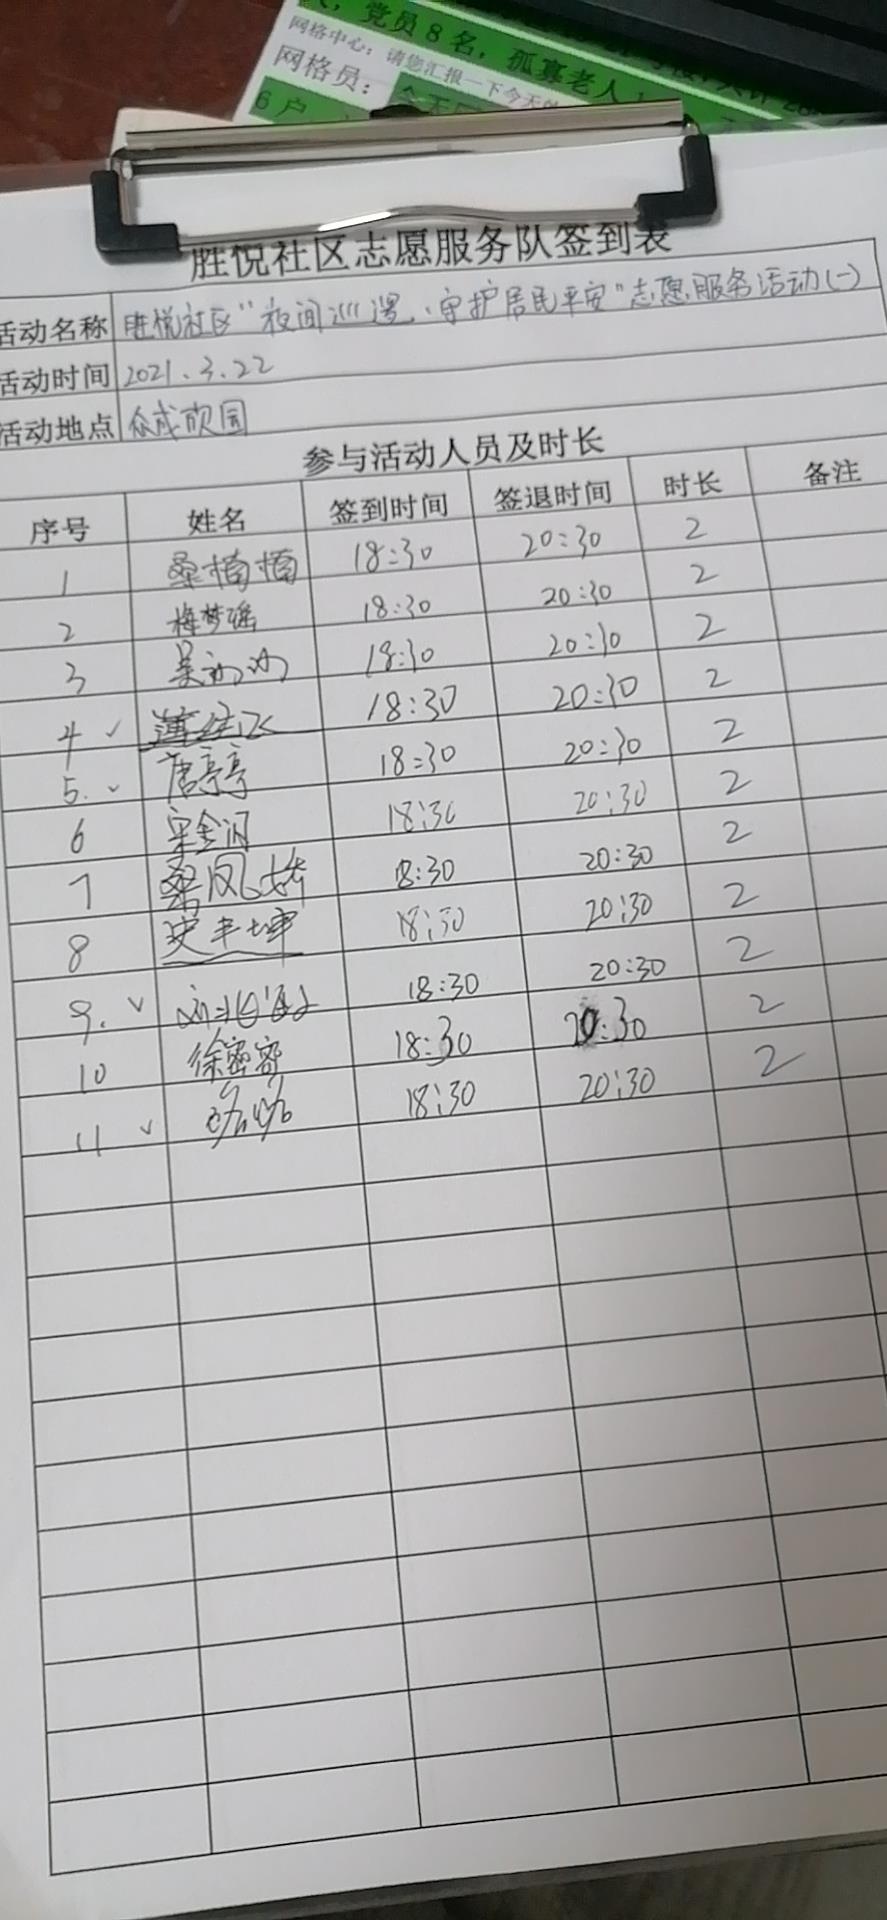 党员8名，孤寡老人
网格中心：请您汇报一下今天的
网格员：
6户
胜悦社区志愿服务队签到表
活动名称 胜悦社区"夜间巡逻、守护居民平安"志愿服务活动(一)
活动时间 2021.3.22
活动地点 众成欣园
参与活动人员及时长
序号 姓名 签到时间 签退时间 时长 备注
1 桑楠楠 18:30 20:30 2
2 梅梦瑶 18:30 20:30 2
3 18:30 20:30 2
4 ✓ 18:30 20:30 2
5. ✓ 唐亭亭 18:30 20:30 2
6 宋金润 18:30 20:30 2
7 桑凤娇 18:30 20:30 2
8 史丰坤 18:30 20:30 2
9. ✓ 18:30 20:30 2
10 徐密密 18:30 20:30 2
11 ✓ 18:30 20:30 2